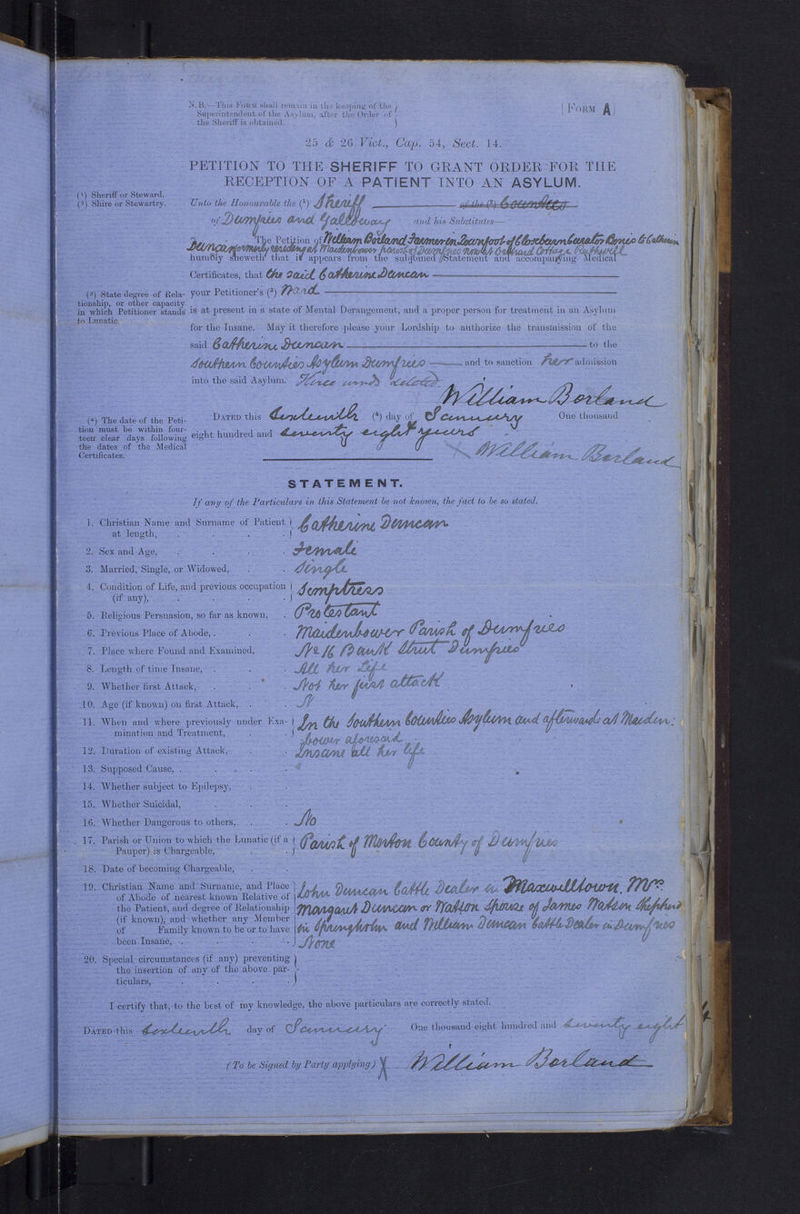 N.B.—This Form shall remain in the keeping of the
Superintendent of the Asylum, after the Order of
the Sheriff is obtained.
[FORM A]
25 & 26 Vict., Cap. 54, Sect. 14.
PETITION TO THE SHERIFF TO GRANT ORDER FOR THE
RECEPTION OF A PATIENT INTO AN ASYLUM.
(1) Sheriff or Steward.
(2) Shire or Stewartry.
Unto the Honourable the (1) Sheriff of the (2) Counties
of Dumfries and Galloway and his Substitutes—
The Petition of William Borland Farmer in Townfoot of Closeburn Curator Bonis to Catherine
Duncan formerly residing at Maidenbower parish of Dumfries now at Cottage
humbly sheweth that it appears from the subjoined Statement and accompanying Medical
Certificates, that the said Catherine Duncan
(3) State degree of Rela-
tionship, or other capacity
in which Petitioner stands
to Lunatic.
your Petitioner's (3) Ward
is at present in a state of Mental Derangement, and a proper person for treatment in an Asylum
for the Insane. May it therefore please your Lordship to authorize the transmission of the
said Catherine Duncan to the
Southern Counties Asylum Dumfries and to sanction her admission
into the said Asylum. Three words deleted.
William Borland
(4) The date of the Peti-
tion must be within four-
teen clear days following
the dates of the Medical
Certificates.
DATED this Sixteenth (4) day of January One thousand
eight hundred and seventy eight years
William Borland
STATEMENT.
If any of the Particulars in this Statement be not known, the fact to be so stated.
1. Christian Name and Surname of Patient at length, Catherine Duncan
2. Sex and Age, Female
3. Married, Single, or Widowed, Single
4. Condition of Life, and previous occupation (if any), Semptress
5. Religious Persuasion, so far as known, Protestant
6. Previous Place of Abode, Maidenbower Parish of Dumfries
7. Place where Found and Examined, No 16 Bank Street Dumfries
8. Length of time Insane, All her Life
9. Whether first Attack, Not her first attack
10. Age (if known) on first Attack,
11. When and where previously under Exa-
mination and Treatment, In the Southern Counties Asylum and afterwards at Maiden:
bower aforesaid
12. Duration of existing Attack, Insane all her life
13. Supposed Cause,
14. Whether subject to Epilepsy,
15. Whether Suicidal,
16. Whether Dangerous to others, No
17. Parish or Union to which the Lunatic (if a
Pauper) is Chargeable, Parish of Morton County of Dumfries
18. Date of becoming Chargeable,
19. Christian Name and Surname, and Place
of Abode of nearest known Relative of
the Patient, and degree of Relationship
(if known); and whether any Member
of Family known to be or to have
been Insane,
John Duncan Cattle Dealer in Maxwelltown, Mrs
Margaret Duncan or Watson Spouse of James Watson Shepherd
in Springholm and William Duncan Cattle Dealer in Dumfries
None
20. Special circumstances (if any) preventing
the insertion of any of the above par-
ticulars,
I certify that, to the best of my knowledge, the above particulars are correctly stated.
DATED this Sixteenth day of January One thousand eight hundred and seventy eight
(To be Signed by Party applying) X William Borland